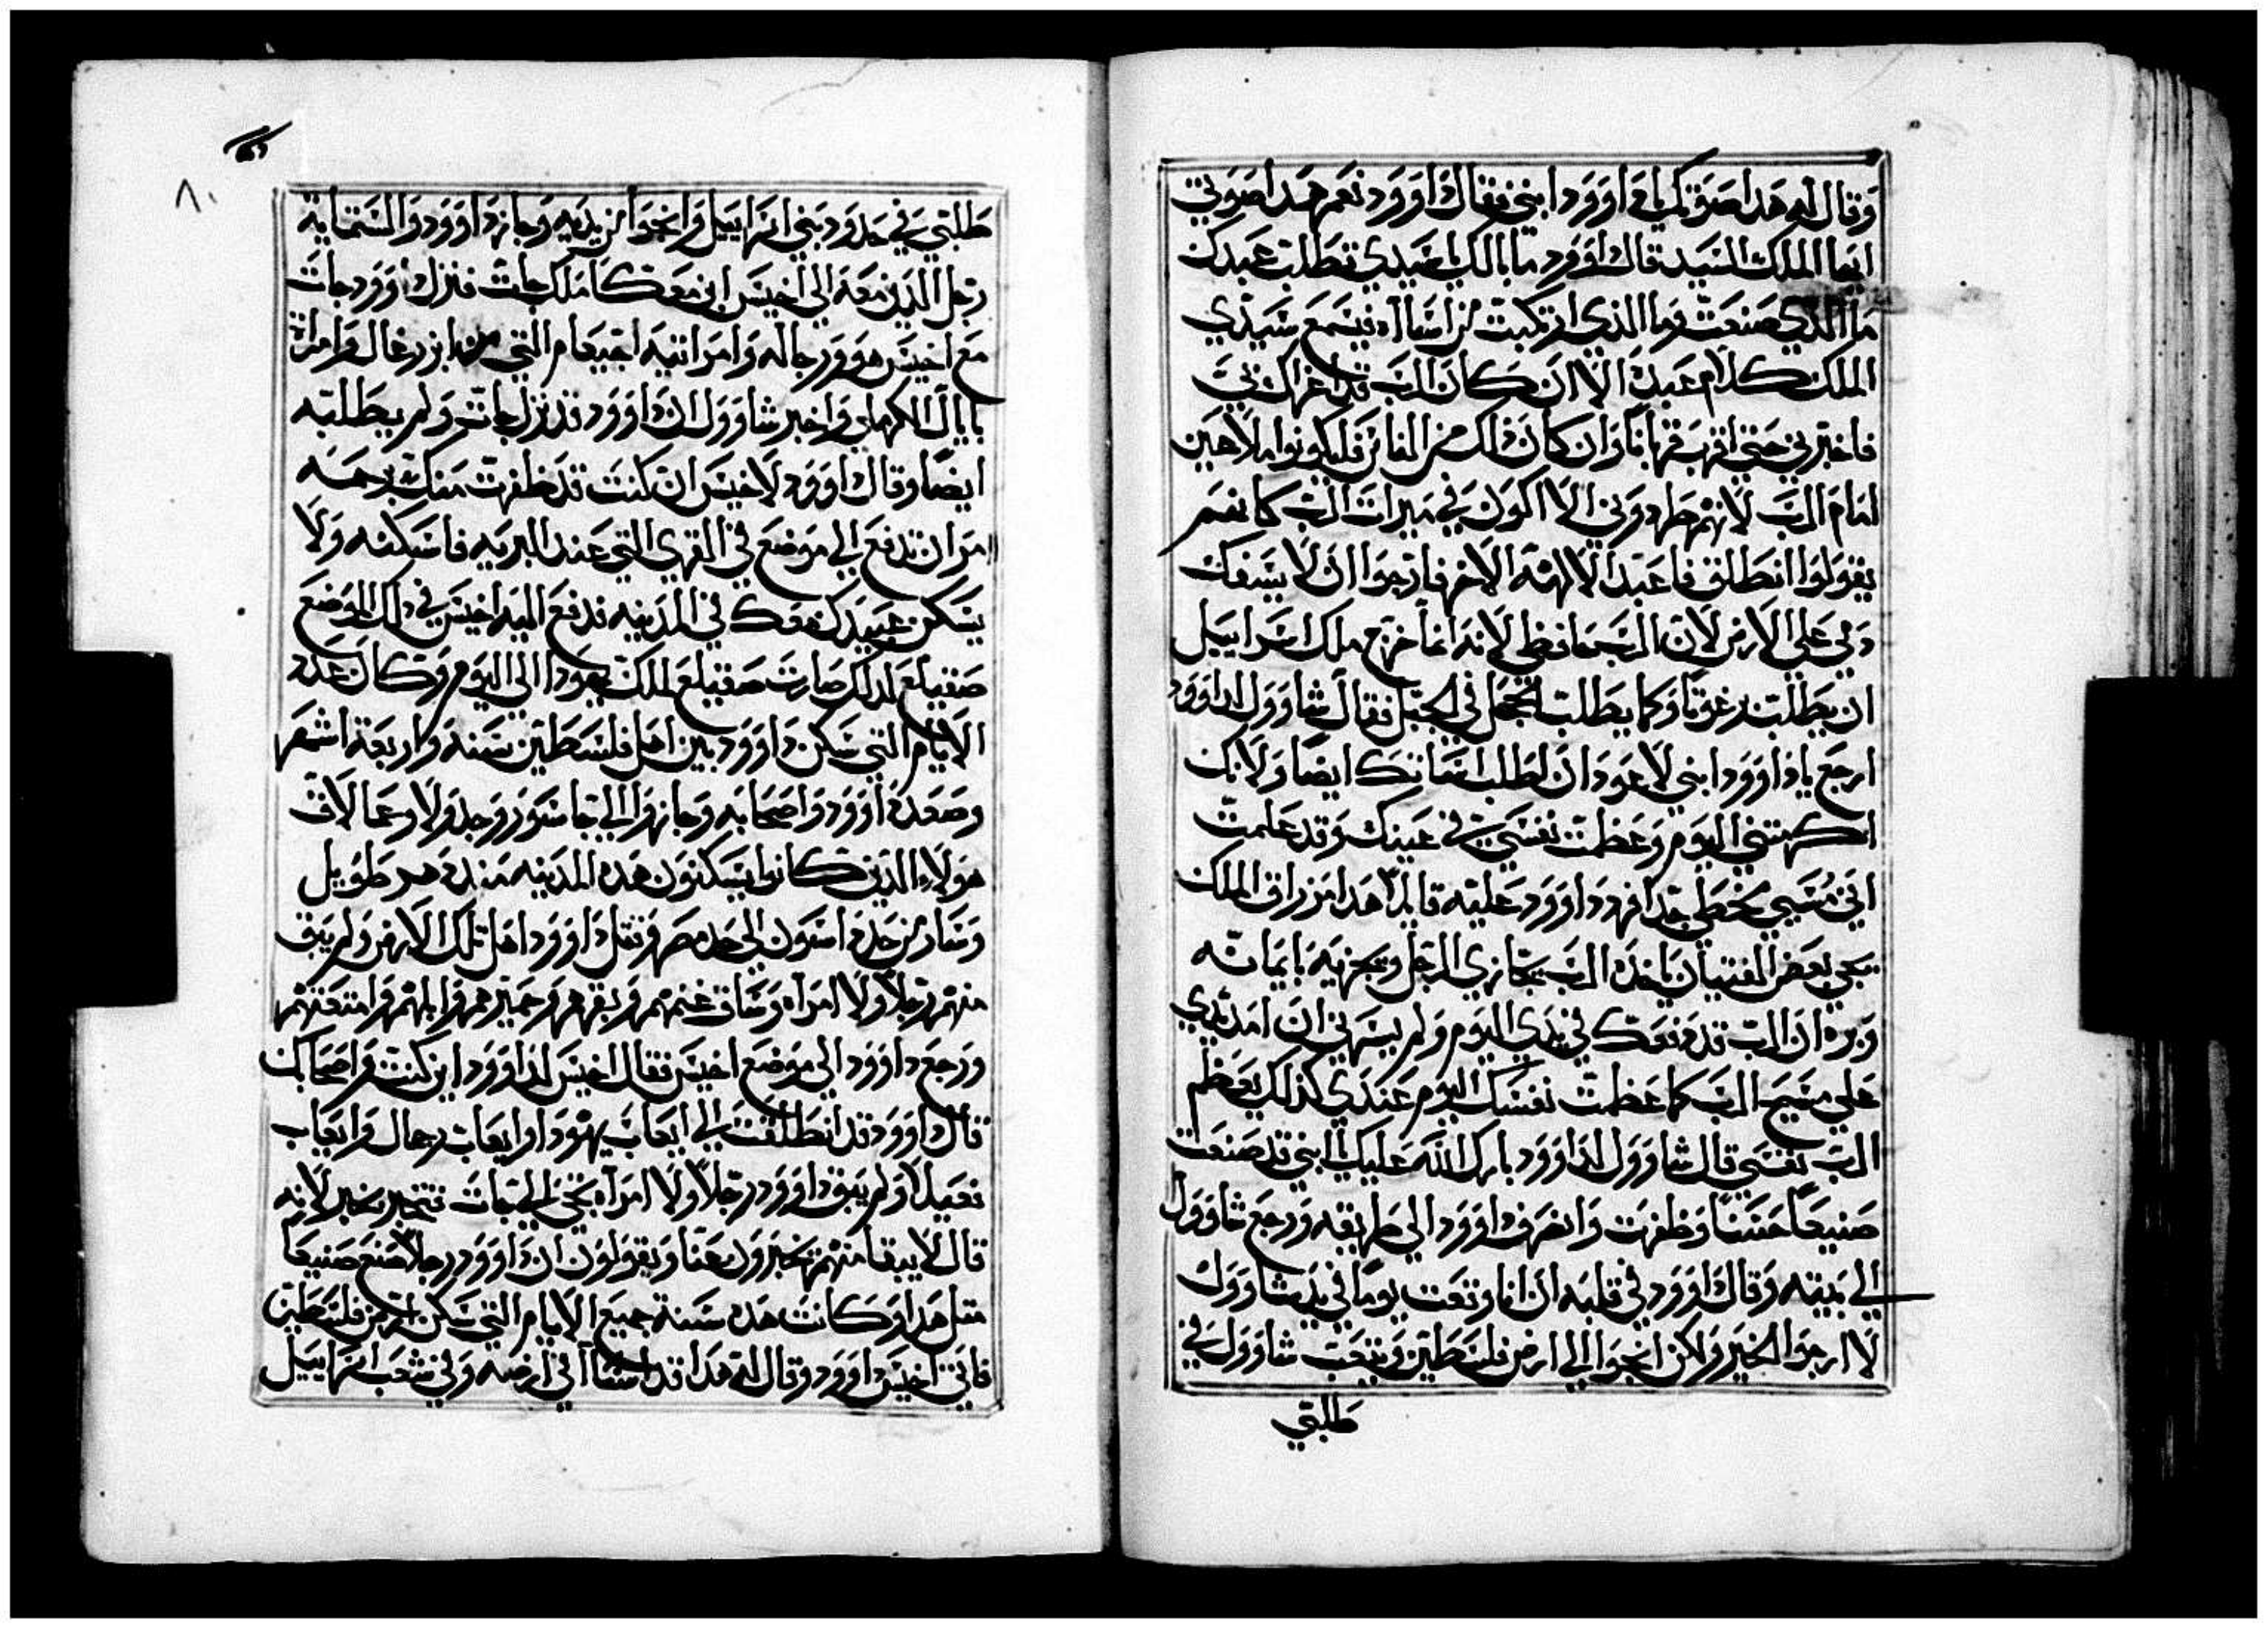 وقال له هدا صوتك يا داوود ابني فقال داوود نعم هدا صوتي
ايها الملك السيد قال داوود ما بالك يا سيدي تطلب عبدك
ما الذي صنعت وما الذي ارتكبت من اساه فيسمع سيدي
الملك كلام عبده الا ان كان الرب قد اغراك بي
فاخبرني حتى اقرب قربانا وان كان ذلك من الناس فليكونوا ملاعين
امام الرب لانهم طردوني الا اكون في ميرات الرب كانهم
يقولوا انطلق فاعبد الالهه الاخر فارجوا ان لا يسفك
دمي على الارض لان الرب حافظي لانه انما خرج ملك اسراييل
ان يطلب برغوتا وكما يطلب الحجل في الجبل فقال شاوول لداوود
ارجع يا داوود ابني لا اعود ان اطلب اساتك ايضا ولانك
اكرمتني اليوم وعظمت نفسي في عينك وقد علمت
اني مسي مخطي جدا فرد داوود عليه قايلا هدا مزراق الملك
يجي بعض الفتيان ياخده الرب يجازي الرجل ويجزيه بايمانه
وبره ان الرب قد دفعك في يدي اليوم ولم يسرني ان امد يدي
على مسيح الرب كما عظمت نفسك اليوم عندي كذلك يعظم
الرب نفسي قال شاوول لداوود بارك الله عليك يا ابني قد صنعت
صنيعا حسنا وظفرت وانصرف داوود الى طريقه ورجع شاوول
الى بيته وقال داوود في قلبه ان انا وقعت يوما في يد شاوول
لا ارجوا الخير ولكن انجوا الى ارض فلسطين ويتعب شاوول في
طلبتي
٨٠
طلبتي في حدود بني اسراييل وانجوا من يديه وجاز داوود والستمايه
رجل الذين معه الى اخيس ابن معكا ملك جات فنزل داوود جات
مع اخيس هو ورجاله وامراتيه اخيعام التي من ازرعال وامراة
نابال الكرملي واخبر شاوول ان داوود قد نزل جات ولم يطلبه
ايضا وقال داوود لاخيس ان كنت قد ظفرت منك برحمه
امر ان تدفع الي موضع في القرى التي عند البريه فاسكنه ولا
يسكن عبيدك معك في المدينه فدفع اليه اخيس في دلك الموضع
صقيلع لدلك صارت صقيلع لملك يهودا الى اليوم وكان عدد
الايام التي سكن داوود بين اهل فلسطين سنه واربعة اشهر
وصعد داوود واصحابه وجازوا الى جاسور وجدولا وعمالاق
هولاء الذين كانوا يسكنون هده المدينه مند دهر طويل
وسار من حد اسون الى حد مصر وقتل داوود اهل تلك الارض ولم يبق
منهم رجلا ولا امراه وساق غنمهم وبقرهم وحميرهم وابلهم وامتعتهم
ورجع داوود الى موضع اخيس فقال اخيس لداوود اين كنت واصحابك
قال داوود قد انطلقت الى ايعاب يهودا وايعاب رحال وايعاب
نعيلا ولم يبق داوود رجلا ولا امراه يجي الى جات فتخبر بخبر لانه
قال لا يبقا منهم يخبرون عنا ويقولون ان داوود رجلا صنع صنيعا
متل هدا وكانت هده سنة جميع الايام التي سكن ارض فلسطين
فاتي اخيس داوود وقال له هدا قد اسا الى ارضه وفي شعب اسراييل